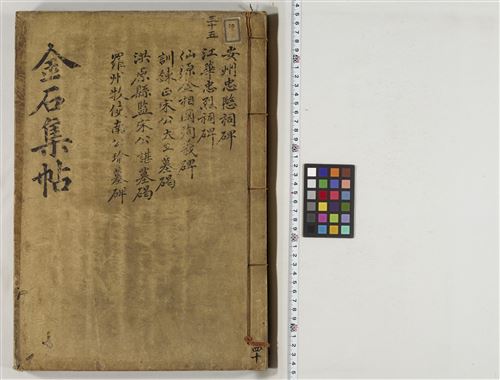 三十五
安州忠愍祠碑
江華忠烈祠碑
仙源金相國殉義碑
訓鍊正宋公大立墓碣
洪原縣監宋公諶墓碣
羅州牧使南公瑜墓碑
金石集帖
四十